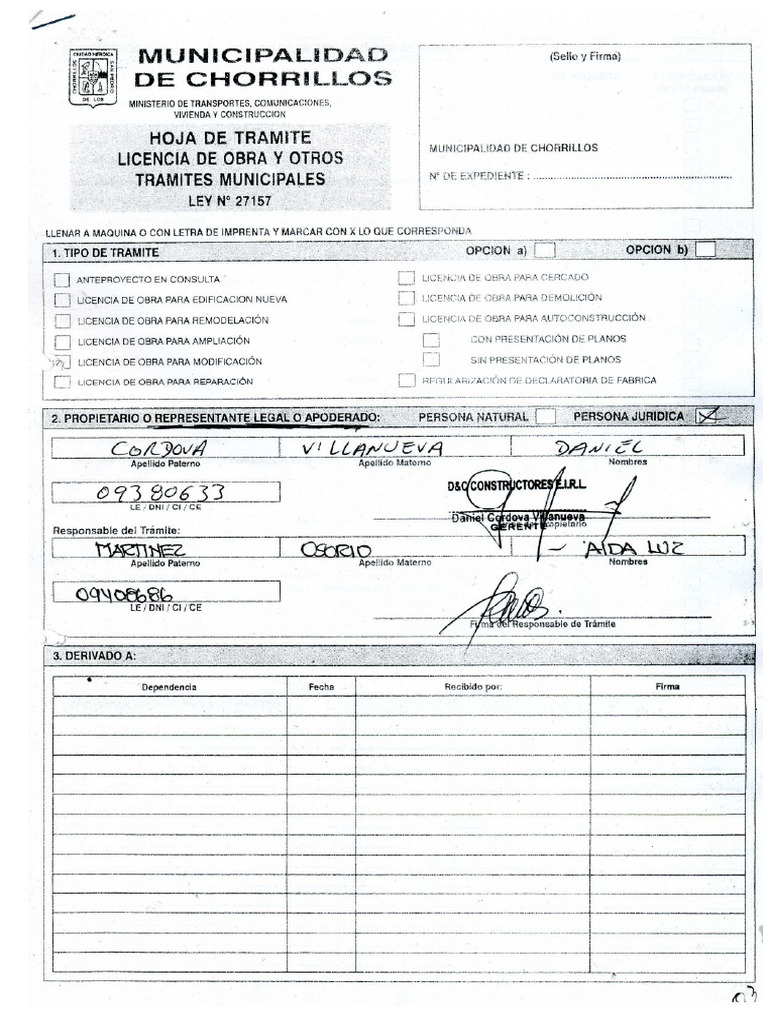 CIUDAD HEROICA
SAN PEDRO
DE LOS
CHORRILLOS
MUNICIPALIDAD
DE CHORRILLOS
MINISTERIO DE TRANSPORTES, COMUNICACIONES,
VIVIENDA Y CONSTRUCCION
HOJA DE TRAMITE
LICENCIA DE OBRA Y OTROS
TRAMITES MUNICIPALES
LEY N° 27157
(Sello y Firma)
MUNICIPALIDAD DE CHORRILLOS
N° DE EXPEDIENTE : ..........................................................
LLENAR A MAQUINA O CON LETRA DE IMPRENTA Y MARCAR CON X LO QUE CORRESPONDA
1. TIPO DE TRAMITE OPCION a) OPCION b)
ANTEPROYECTO EN CONSULTA LICENCIA DE OBRA PARA CERCADO
LICENCIA DE OBRA PARA EDIFICACION NUEVA LICENCIA DE OBRA PARA DEMOLICIÓN
LICENCIA DE OBRA PARA REMODELACIÓN LICENCIA DE OBRA PARA AUTOCONSTRUCCIÓN
LICENCIA DE OBRA PARA AMPLIACIÓN CON PRESENTACIÓN DE PLANOS
LICENCIA DE OBRA PARA MODIFICACIÓN SIN PRESENTACIÓN DE PLANOS
LICENCIA DE OBRA PARA REPARACIÓN REGULARIZACIÓN DE DECLARATORIA DE FABRICA
2. PROPIETARIO O REPRESENTANTE LEGAL O APODERADO: PERSONA NATURAL PERSONA JURIDICA X
CORDOVA VILLANUEVA DANIEL
Apellido Paterno Apellido Materno Nombres
09380633
LE / DNI / CI / CE
D&C CONSTRUCTORES E.I.R.L.
Daniel Cordova Villanueva
GERENTE Propietario
Responsable del Trámite:
MARTINEZ OSORIO - AIDA LUZ
Apellido Paterno Apellido Materno Nombres
09408686
LE / DNI / CI / CE
Firma del Responsable de Trámite
3. DERIVADO A:
Dependencia Fecha Recibido por: Firma
03